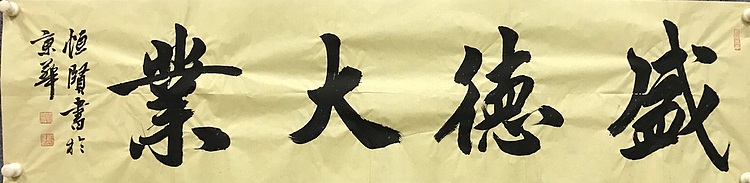 盛德大業
恒賢書於
京華